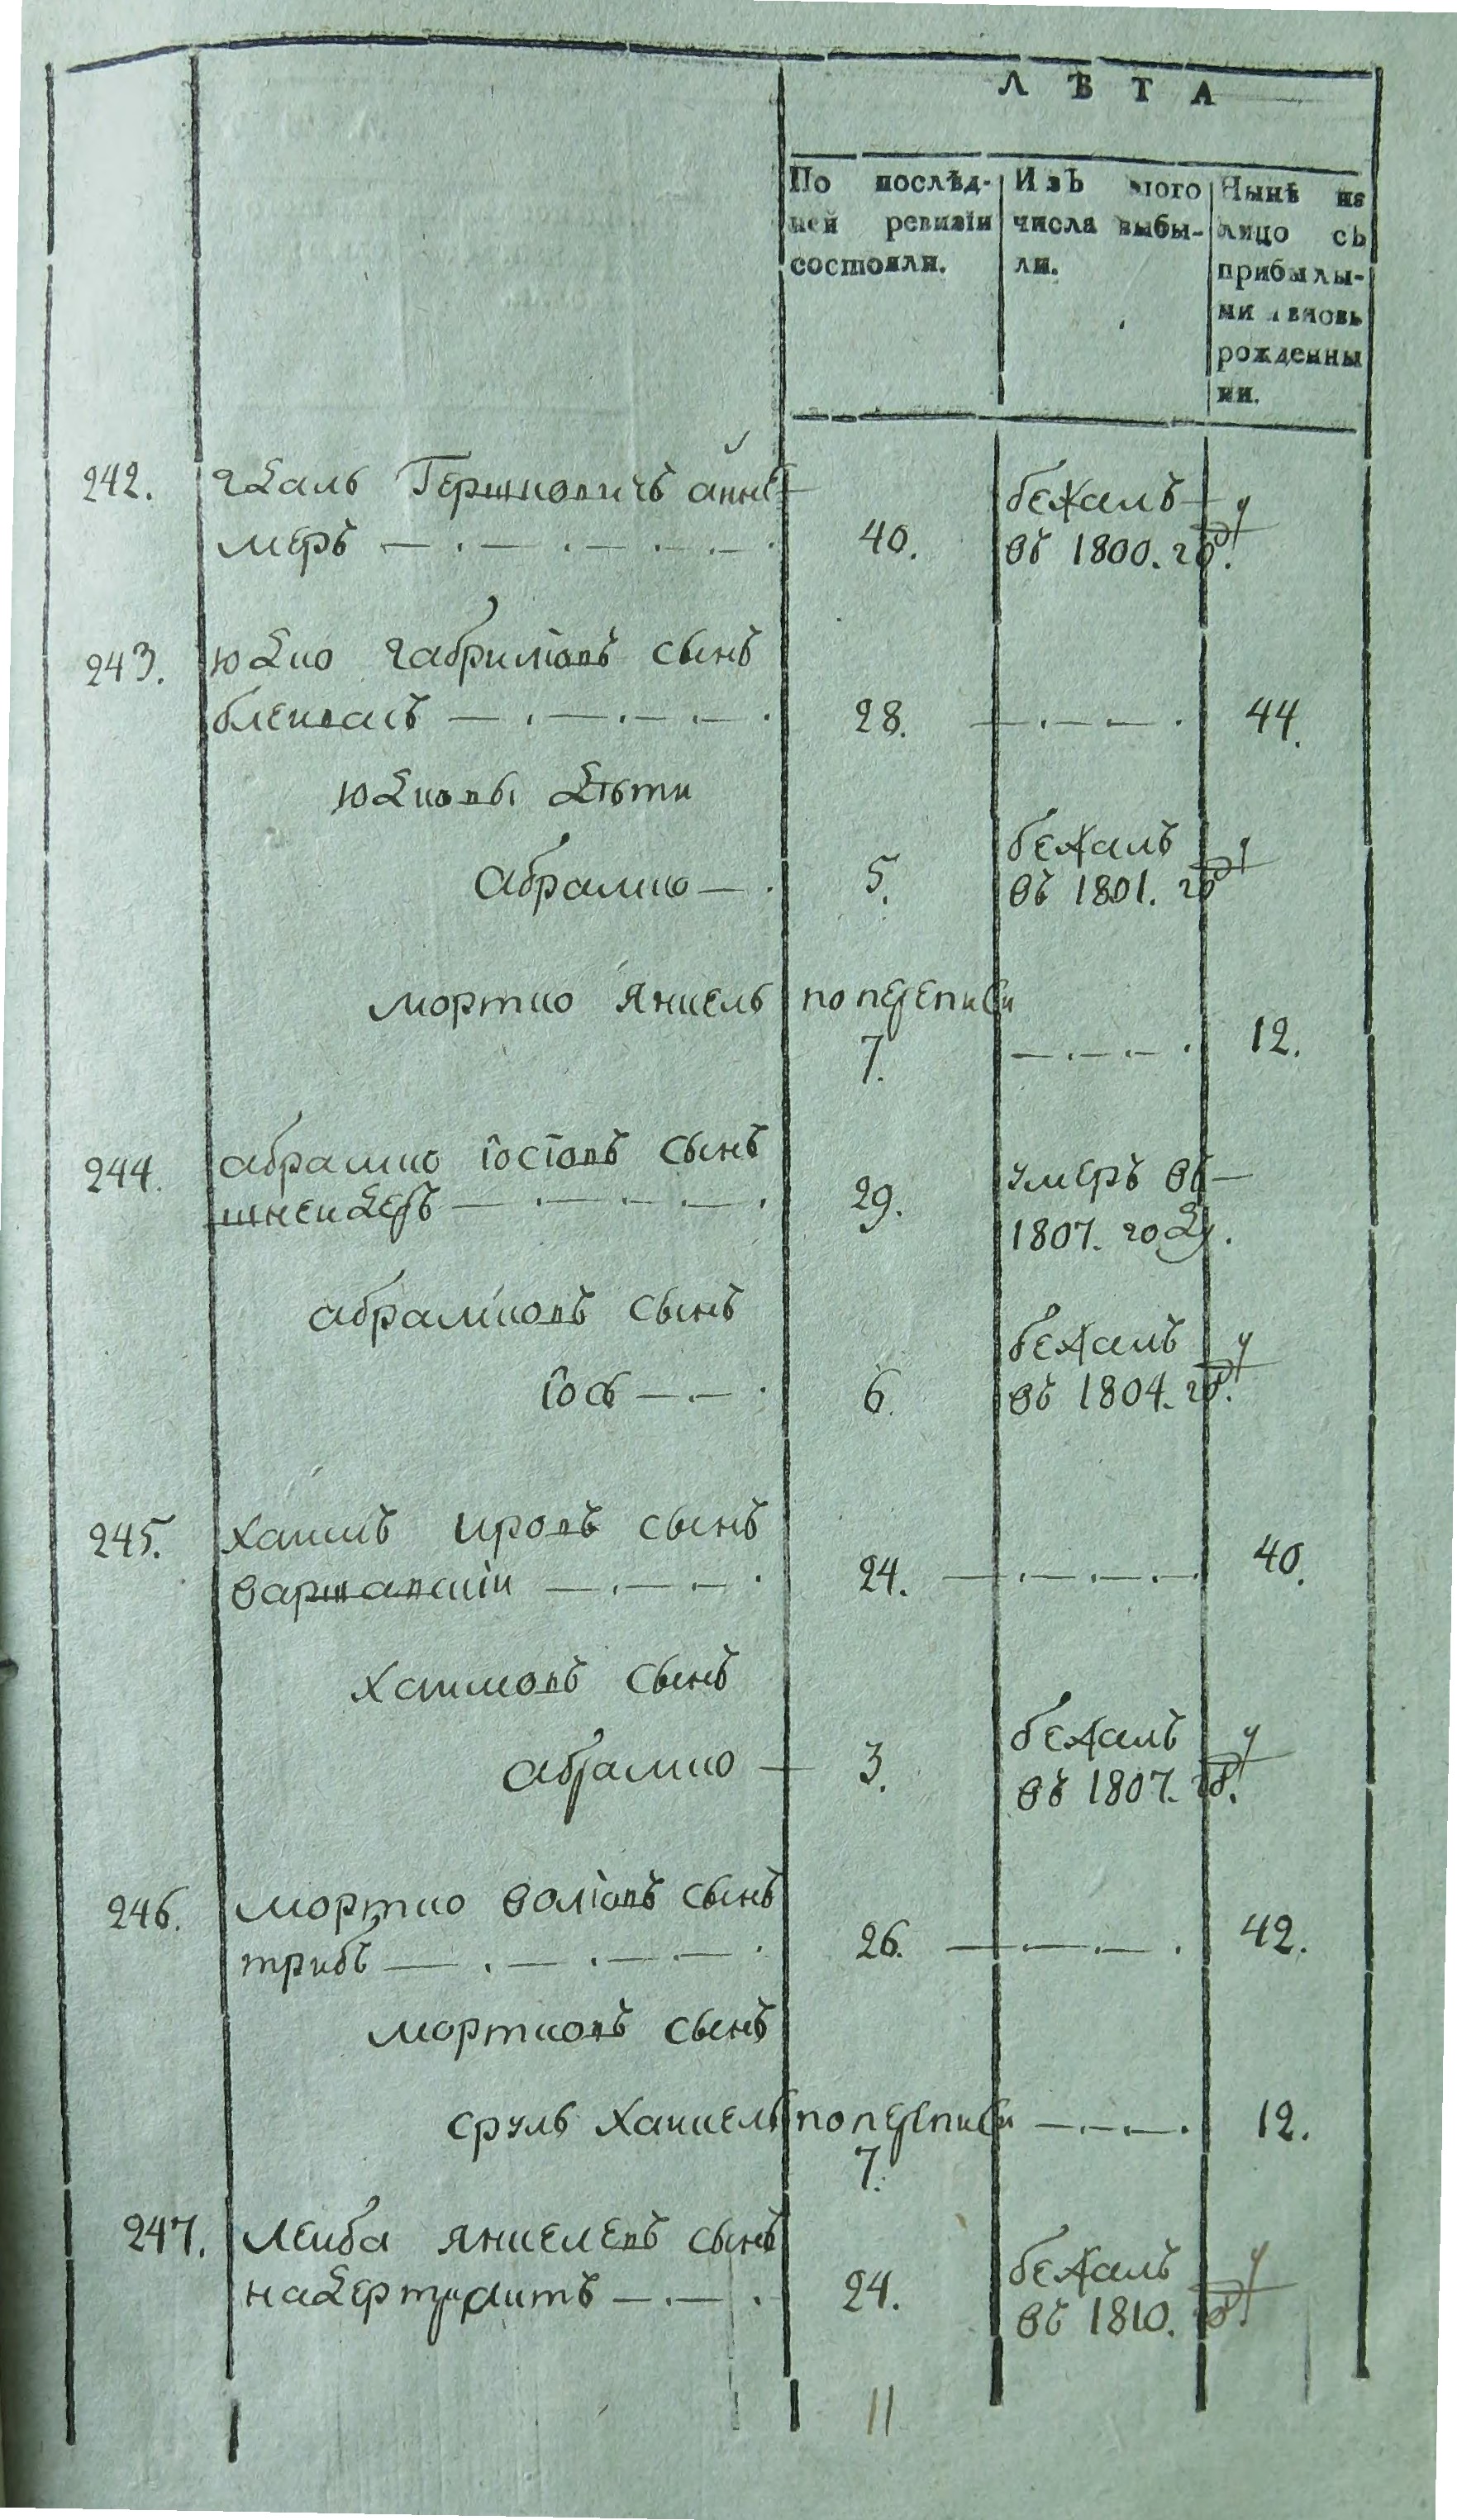 ЛѢТА
По послѣд-
ней ревизіи
состояли.
Изъ этого
числа выбы-
ли.
Нынѣ на
лицо съ
прибылы-
ми и вновь
рожденны
ми.
242. гдаль Гершковичъ
меръ 40. бежалъ
въ 1800. году.
243. юдко габрилювъ сынъ
блеивасъ 28. 44.
юдковы дѣти
абрамко 5. бежалъ
въ 1801. году
мортко янкель по переписи
7. 12.
244. абрамко іосіовъ сынъ
шнеидеръ 29. умеръ въ
1807. году.
абрамковъ сынъ
іось 6. бежалъ
въ 1804. году.
245. хаимъ ировъ сынъ
варшавскіи 24. 40.
хаимовъ сынъ
абрамко 3. бежалъ
въ 1807. году.
246. мортко воліовъ сынъ
трибъ 26. 42.
мортковъ сынъ
сруль хаикель по переписи 12.
7.
247. леиба янкелевъ сынъ
24. бежалъ
въ 1810. году.
11